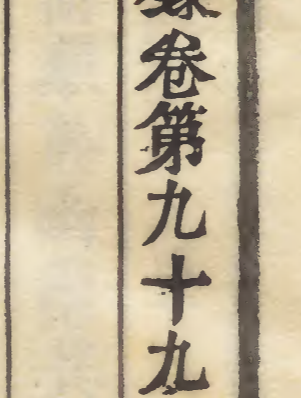 卷第九十九